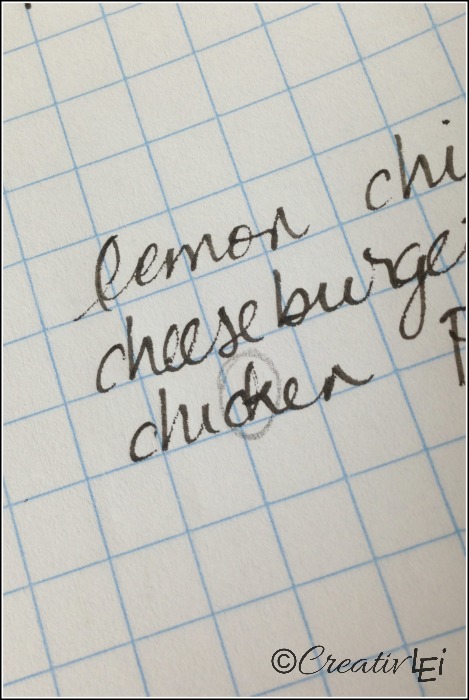 lemon chi
cheeseburge
chicken P
©CreativLEi